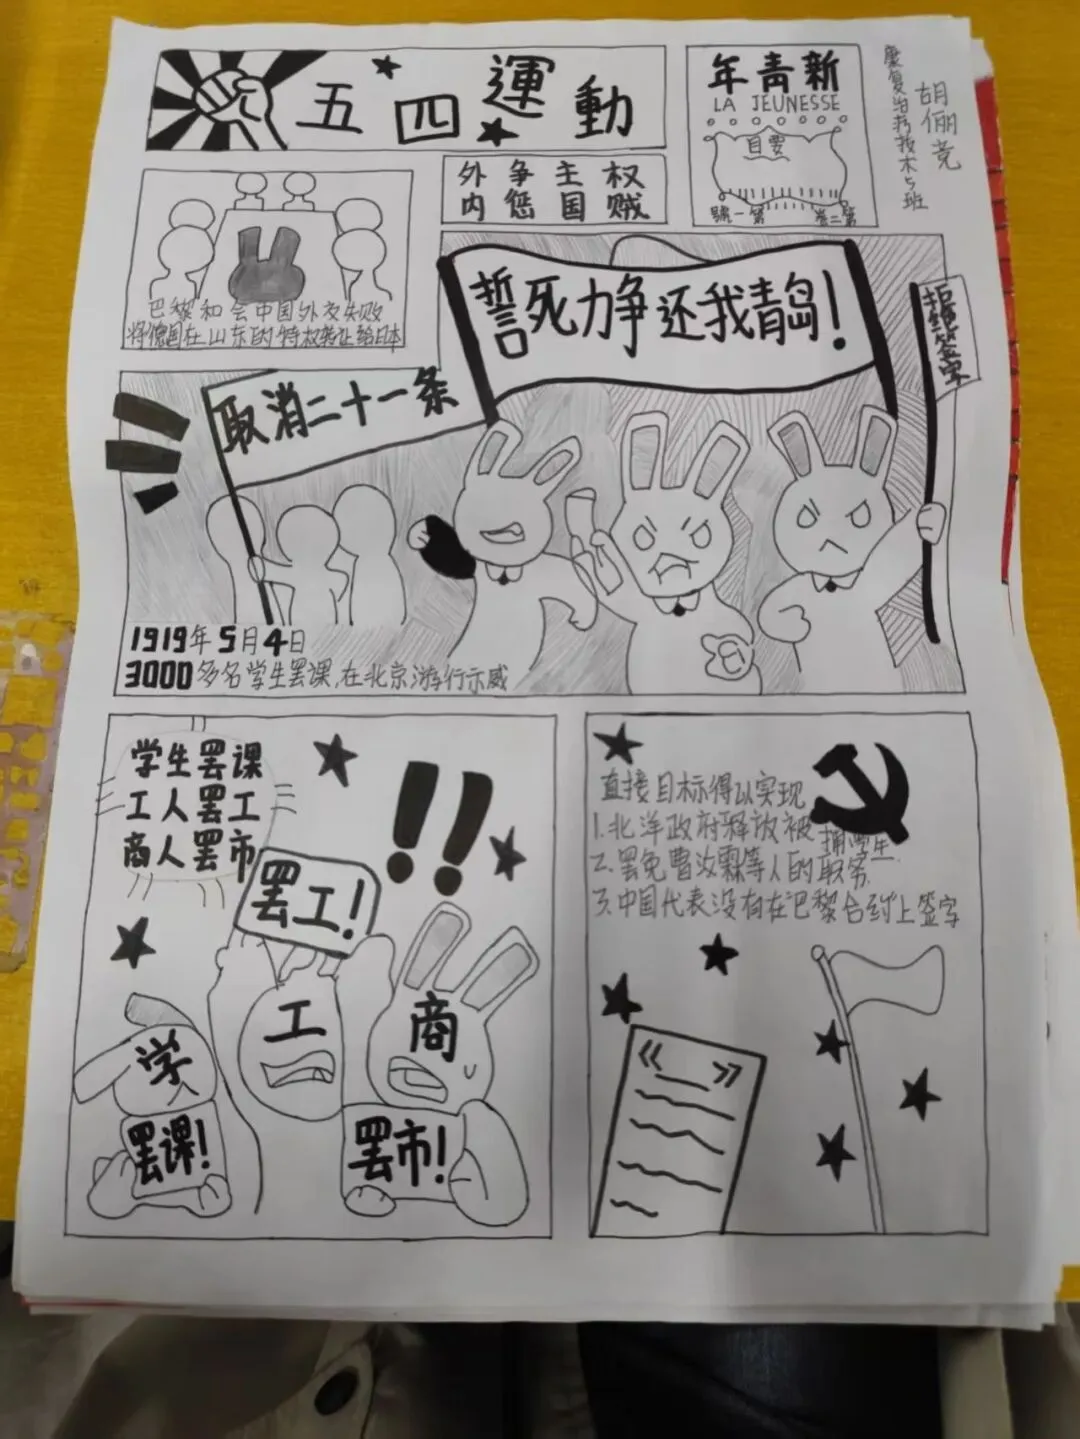 五四運動
年青新
LA JEUNESSE
目要
號一第 卷二第
康复治疗技术5班
胡俪竞
外争主权
内惩国贼
巴黎和会中国外交失败
将德国在山东的特权转让给日本
誓死力争还我青岛!
拒绝签字
取消二十一条
1919年5月4日
3000多名学生罢课,在北京游行示威
学生罢课
工人罢工
商人罢市
!!
罢工!
工
商
学
罢课!
罢市!
直接目标得以实现
1.北洋政府释放被捕学生
2.罢免曹汝霖等人的职务
3.中国代表没有在巴黎合约上签字